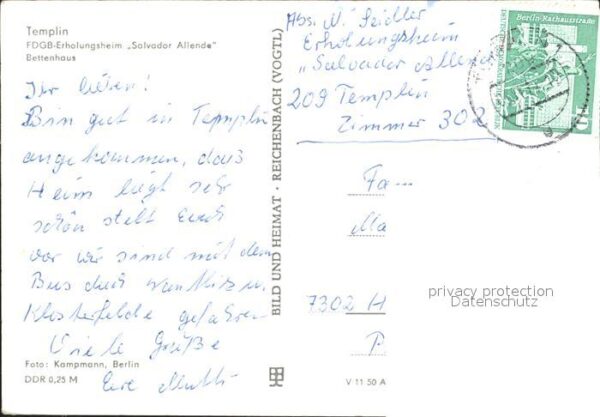 Templin
FDGB-Erholungsheim „Salvador Allende"
Bettenhaus
Ihr lieben!
Bin gut in Templin
angekommen, das
Heim liegt sehr
schön stellt Euch
vor wir sind mit dem
Bus durch
Klosterfelde gefahren
Viele Grüße
Eure Mutti
Foto: Kampmann, Berlin
DDR 0,25 M
BILD UND HEIMAT · REICHENBACH (VOGTL)
V 11 50 A
Abs. M. Seidler
Erholungsheim
"Salvador Allende
209 Templin
Zimmer 302
Berlin-Rathausstraße
10
Fa...
Ma
7302 H
P
privacy protection
Datenschutz